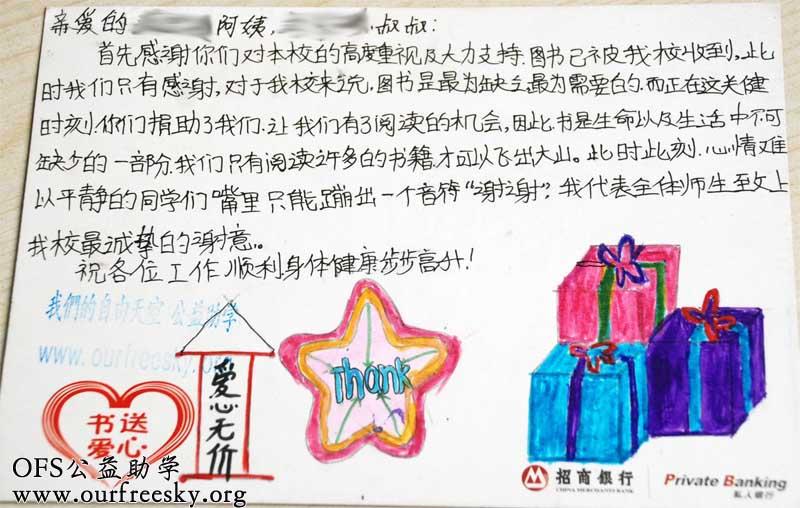 亲爱的 阿姨, 叔叔:
首先感谢你们对本校的高度重视及大力支持.图书已被我校收到,此
时我们只有感谢,对于我校来说,图书是最为缺乏最为需要的.而正在这关健
时刻.你们捐助了我们.让我们有了阅读的机会,因此书是生命以及生活中不可
缺少的一部分.我们只有阅读许多的书籍才可以飞出大山。此时此刻.心情难
以平静的同学们嘴里只能蹦出一个音符“谢谢”?我代表全体师生致上
我校最诚挚的谢意。
祝各位工作顺利身体健康步步高升!
我們的自由天空 公益助学
www.ourfreesky.org
爱心无价
Thank
书送
爱心
OFS公益助学
www.ourfreesky.org
招商银行
CHINA MERCHANTS BANK
Private Banking
私人银行